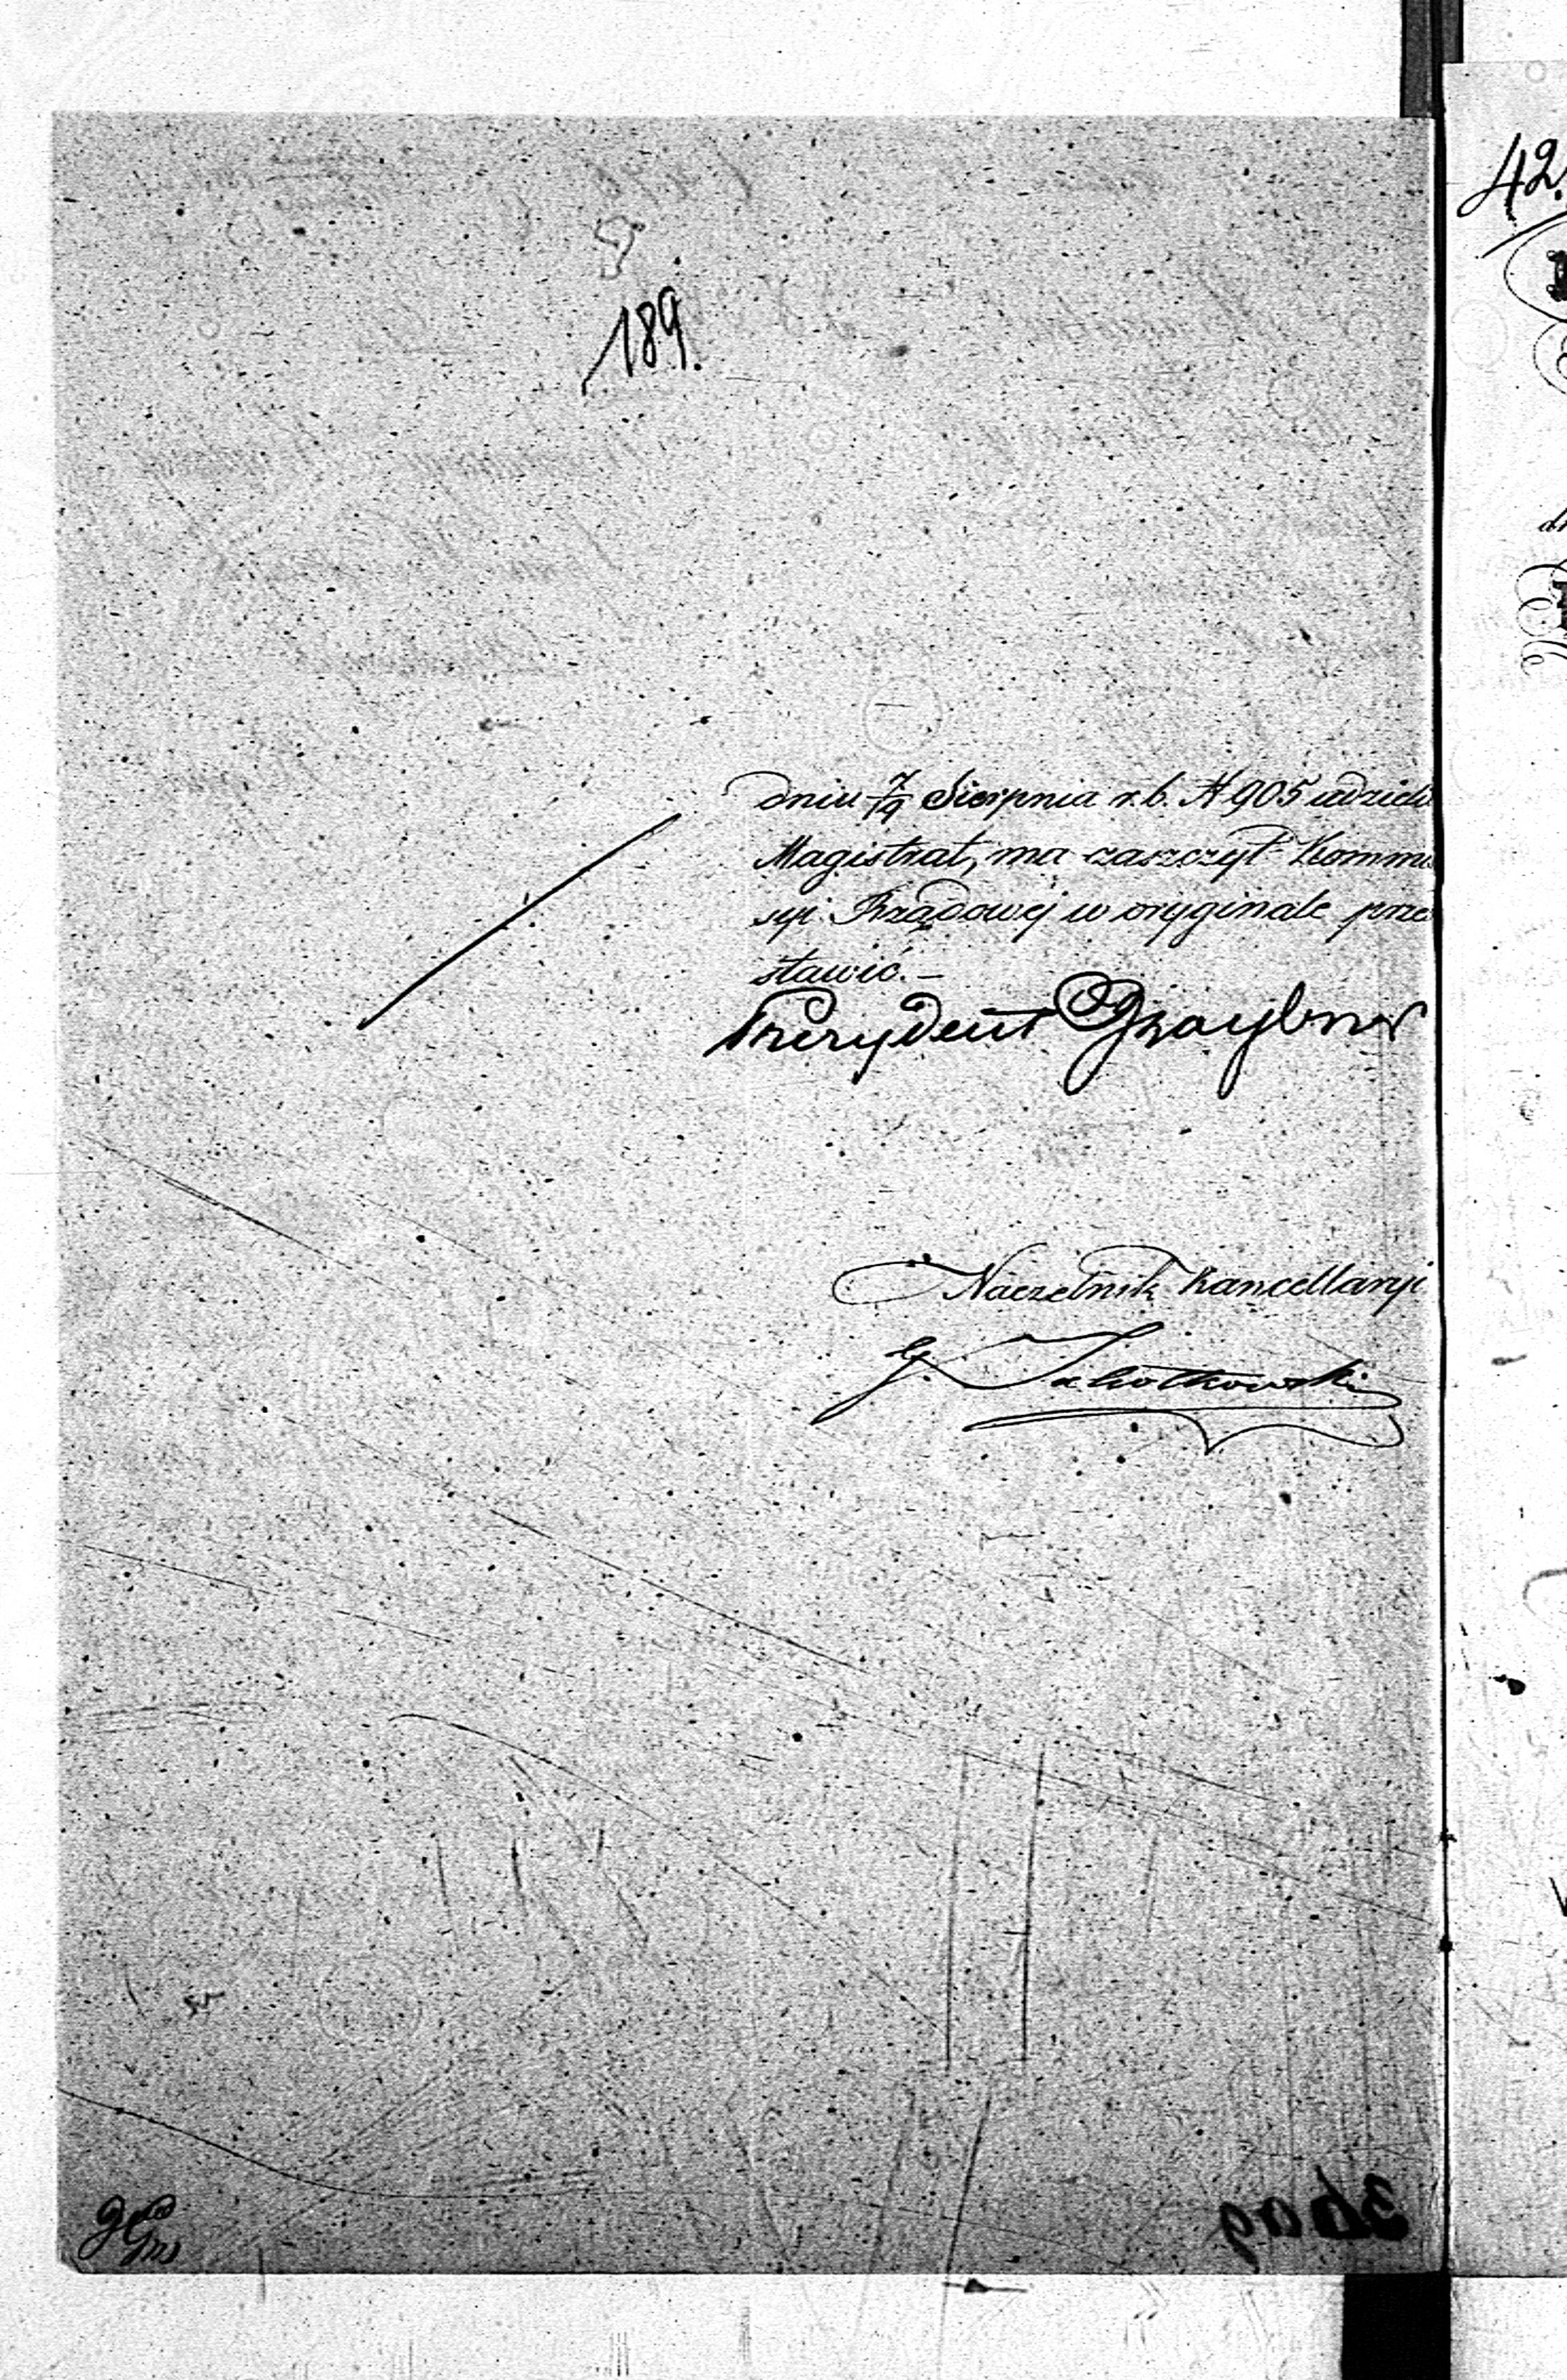 189.
dniu 7/19 Sierpnia r. b. N 905 udzielo
Magistrat, ma zaszczyt Kommis
syi Rządowej w oryginale prze
stawić. —
Prezydent Graybner
Naczelnik Kancellaryi
G.
42.